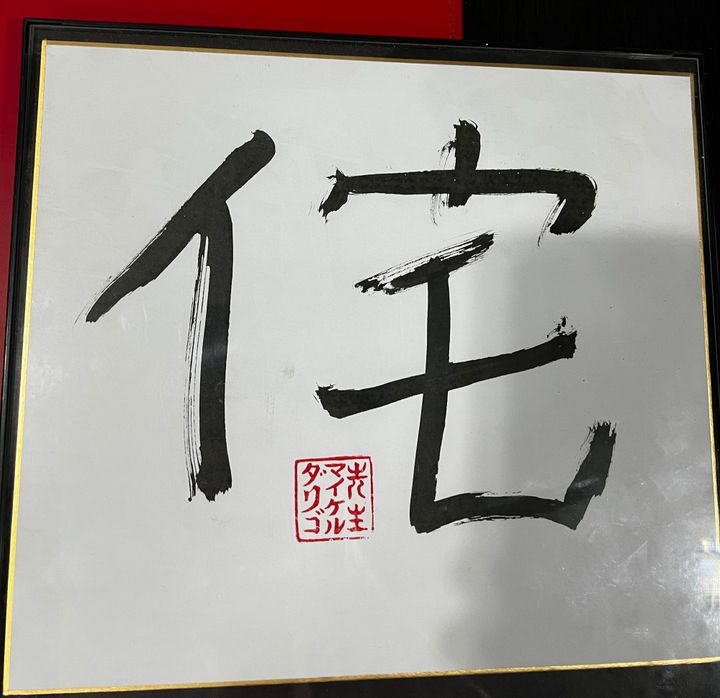 侘
先生
マイケル
ダリゴ